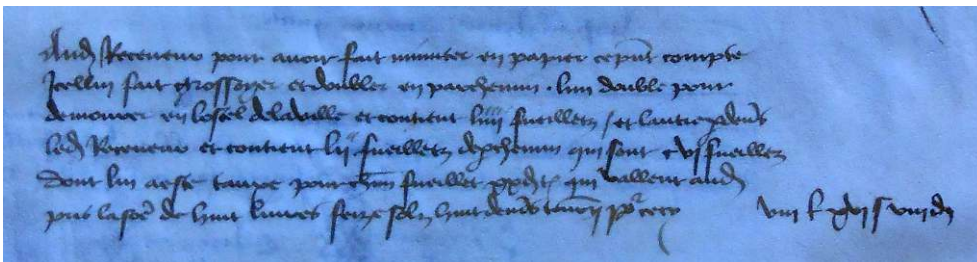 Aud Receveur pour avoir fait minuter en papier ce pnt compte
Icellui fait grossoyer et doubler en parchemin . lun double pour
demourer en lostel de la ville et contient liiii fueillez / et lautre pdevs
led Receveur et contient lii fueillez de pchemin qui sont cvi fueillez
dont lui a este tauxe pour chun fueillet xx d t qui vallent aud
pris la some de huit livres seize solz huit den tourn pr cecy viii l xvi s viii d